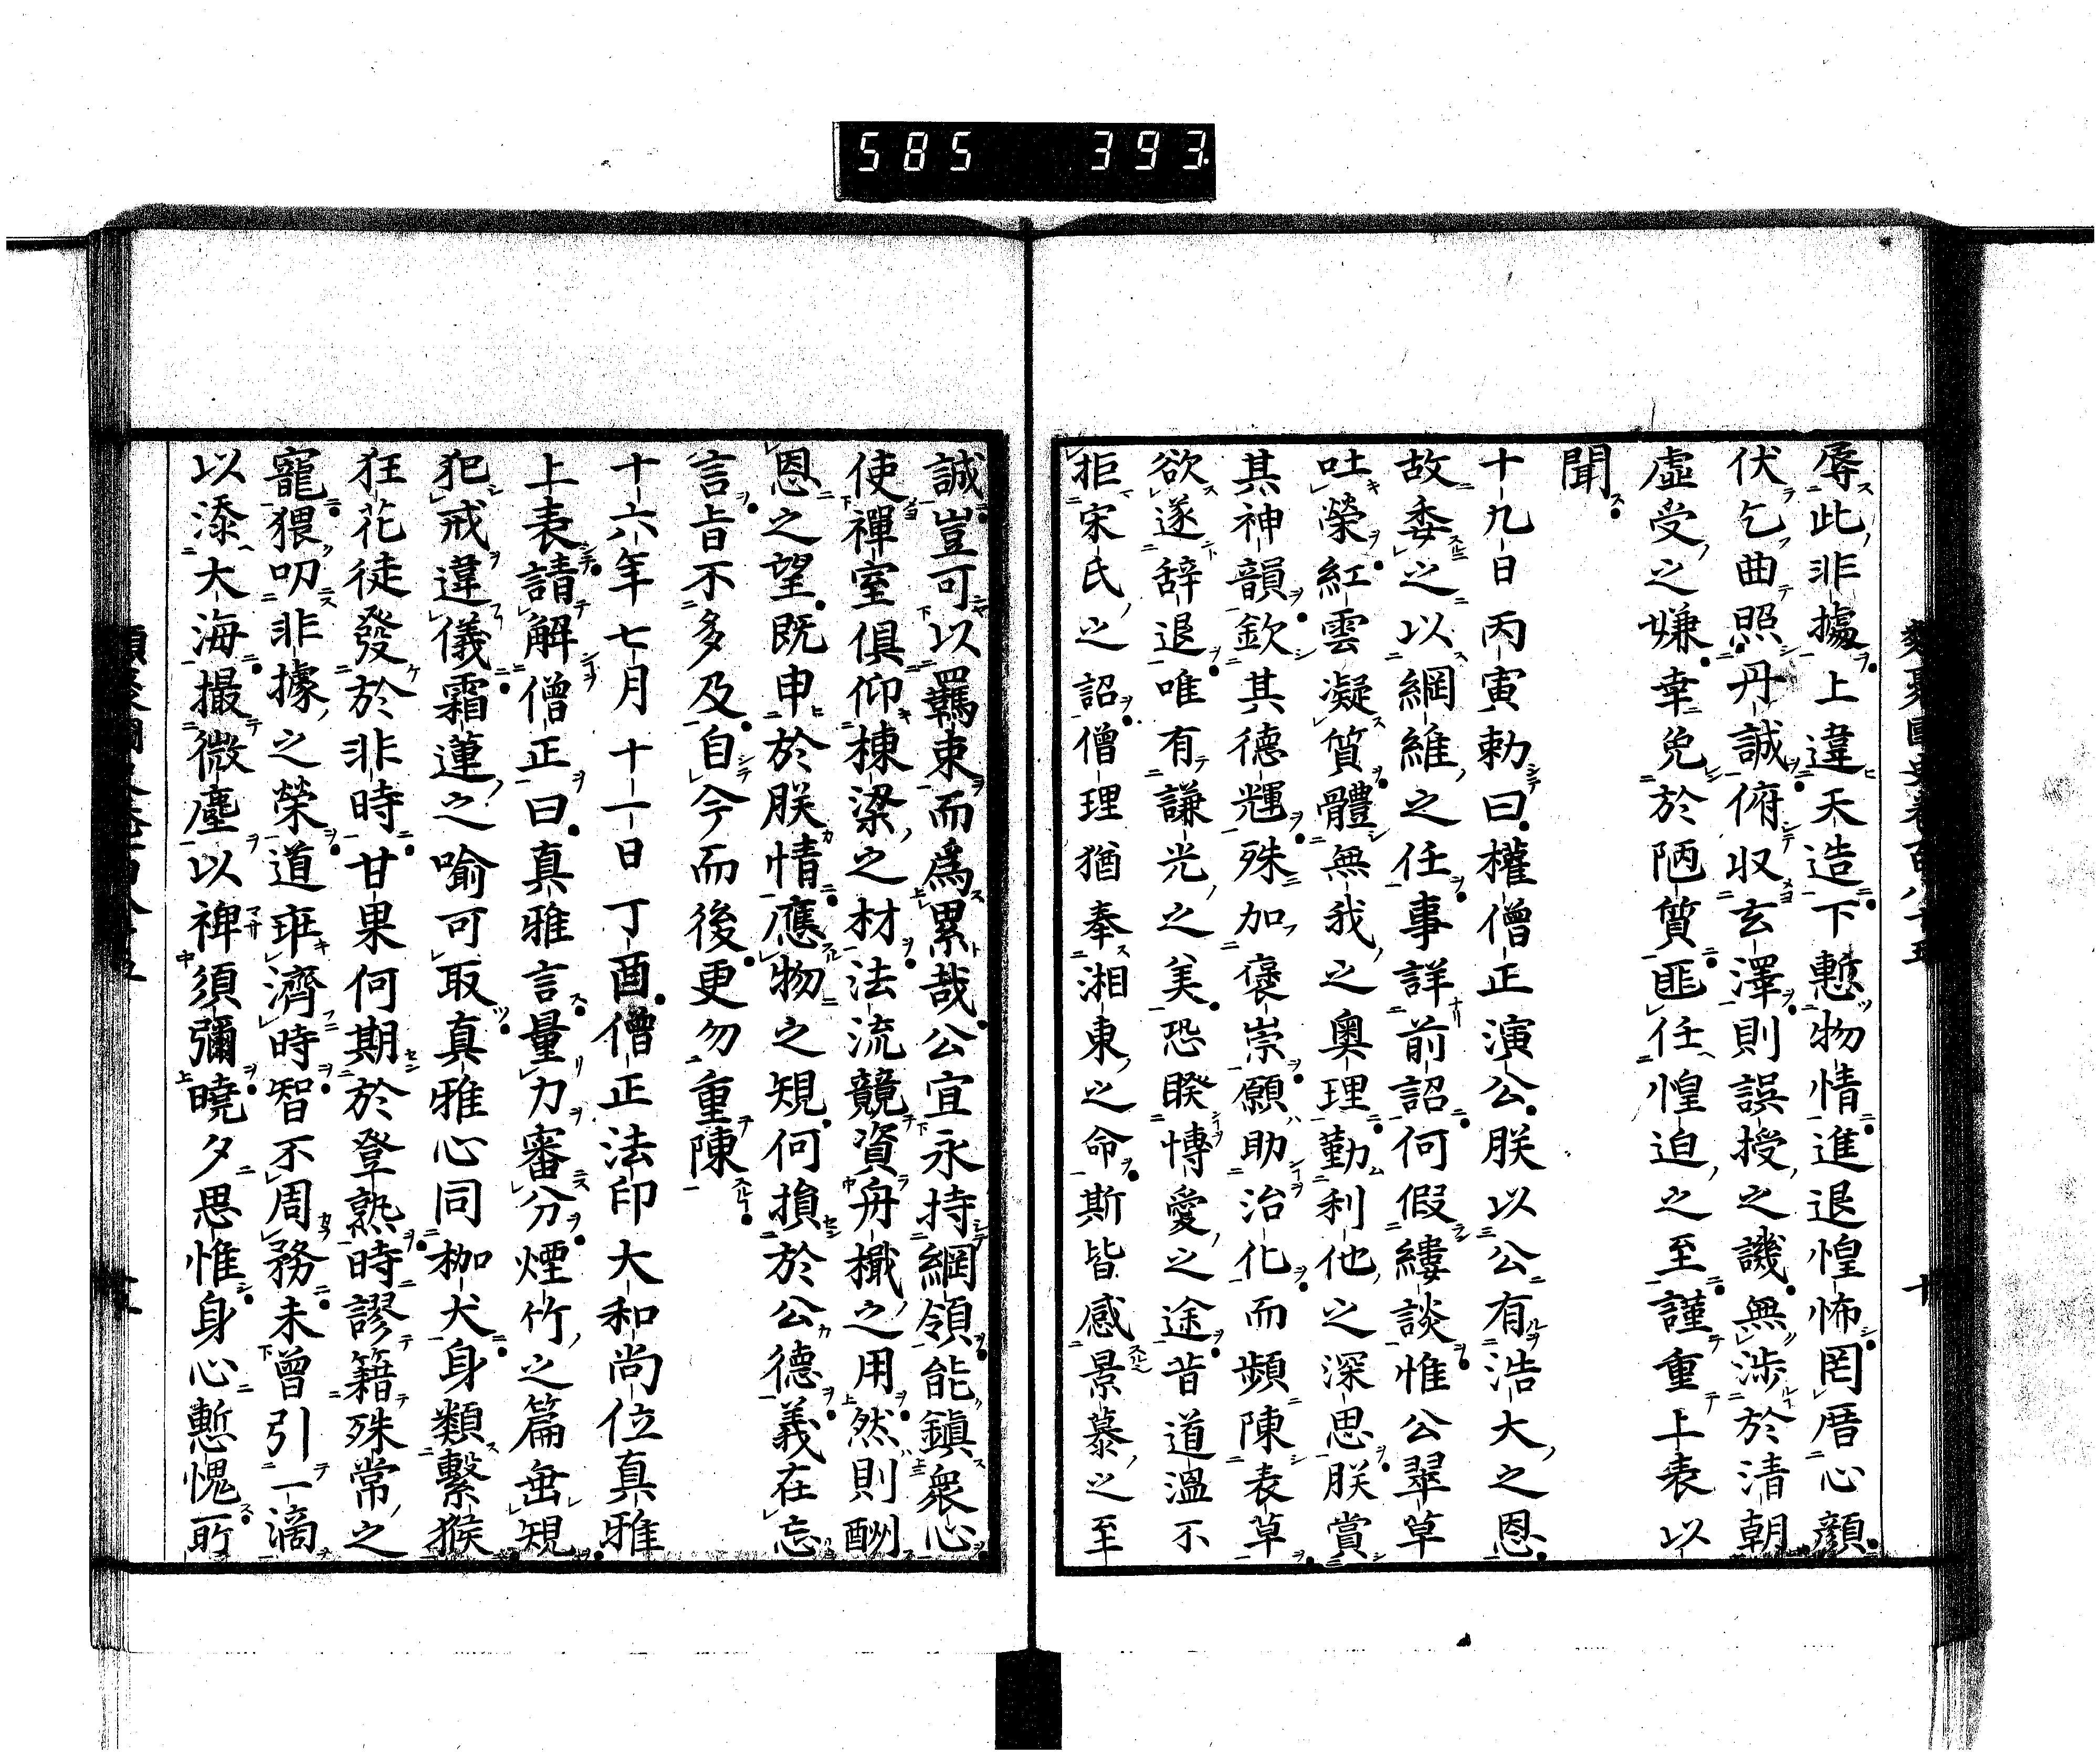 585 393.
辱此非據上違天造下慙物情進退惶怖罔厝心顏
伏乞曲照丹誠俯収玄澤則誤授之譏無渉於清朝
虛受之嫌幸免於陋質匪任惶迫之至謹重上表以
聞
十九日丙寅勅曰權僧正演公朕以公有浩大之恩
故委之以綱維之任事詳前詔何假縷談惟公翠草
吐榮紅雲凝質體無我之奧理勤利他之深思朕賞
其神韻欽其德輝殊加褒崇願助治化而頻陳表草
欲遂辭退唯有謙光之美恐睽愽愛之途昔道溫不
拒宋氏之詔僧理猶奉湘東之命斯皆感景慕之至
誠豈可以羈束而爲累哉公宜永持綱領能鎭衆心
使禪室俱仰棟梁之材法流競資舟檝之用然則酬
恩之望既申於朕情應物之䂓何損於公德義在忘
言旨不多及自今而後更勿重陳
十六年七月十一日丁酉僧正法印大和尚位真雅
上表請解僧正曰真雅言量力審分煙竹之篇垂䂓
犯戒違儀霜蓮之喻可取真雅心同枷犬身類繫猴
狂花徒發於非時甘果何期於登熟時謬籍殊常之
寵猥叨非據之榮道乖濟時智不周務未曾引一滴
以添大海撮微塵以裨須彌曉夕思惟身心慙愧所